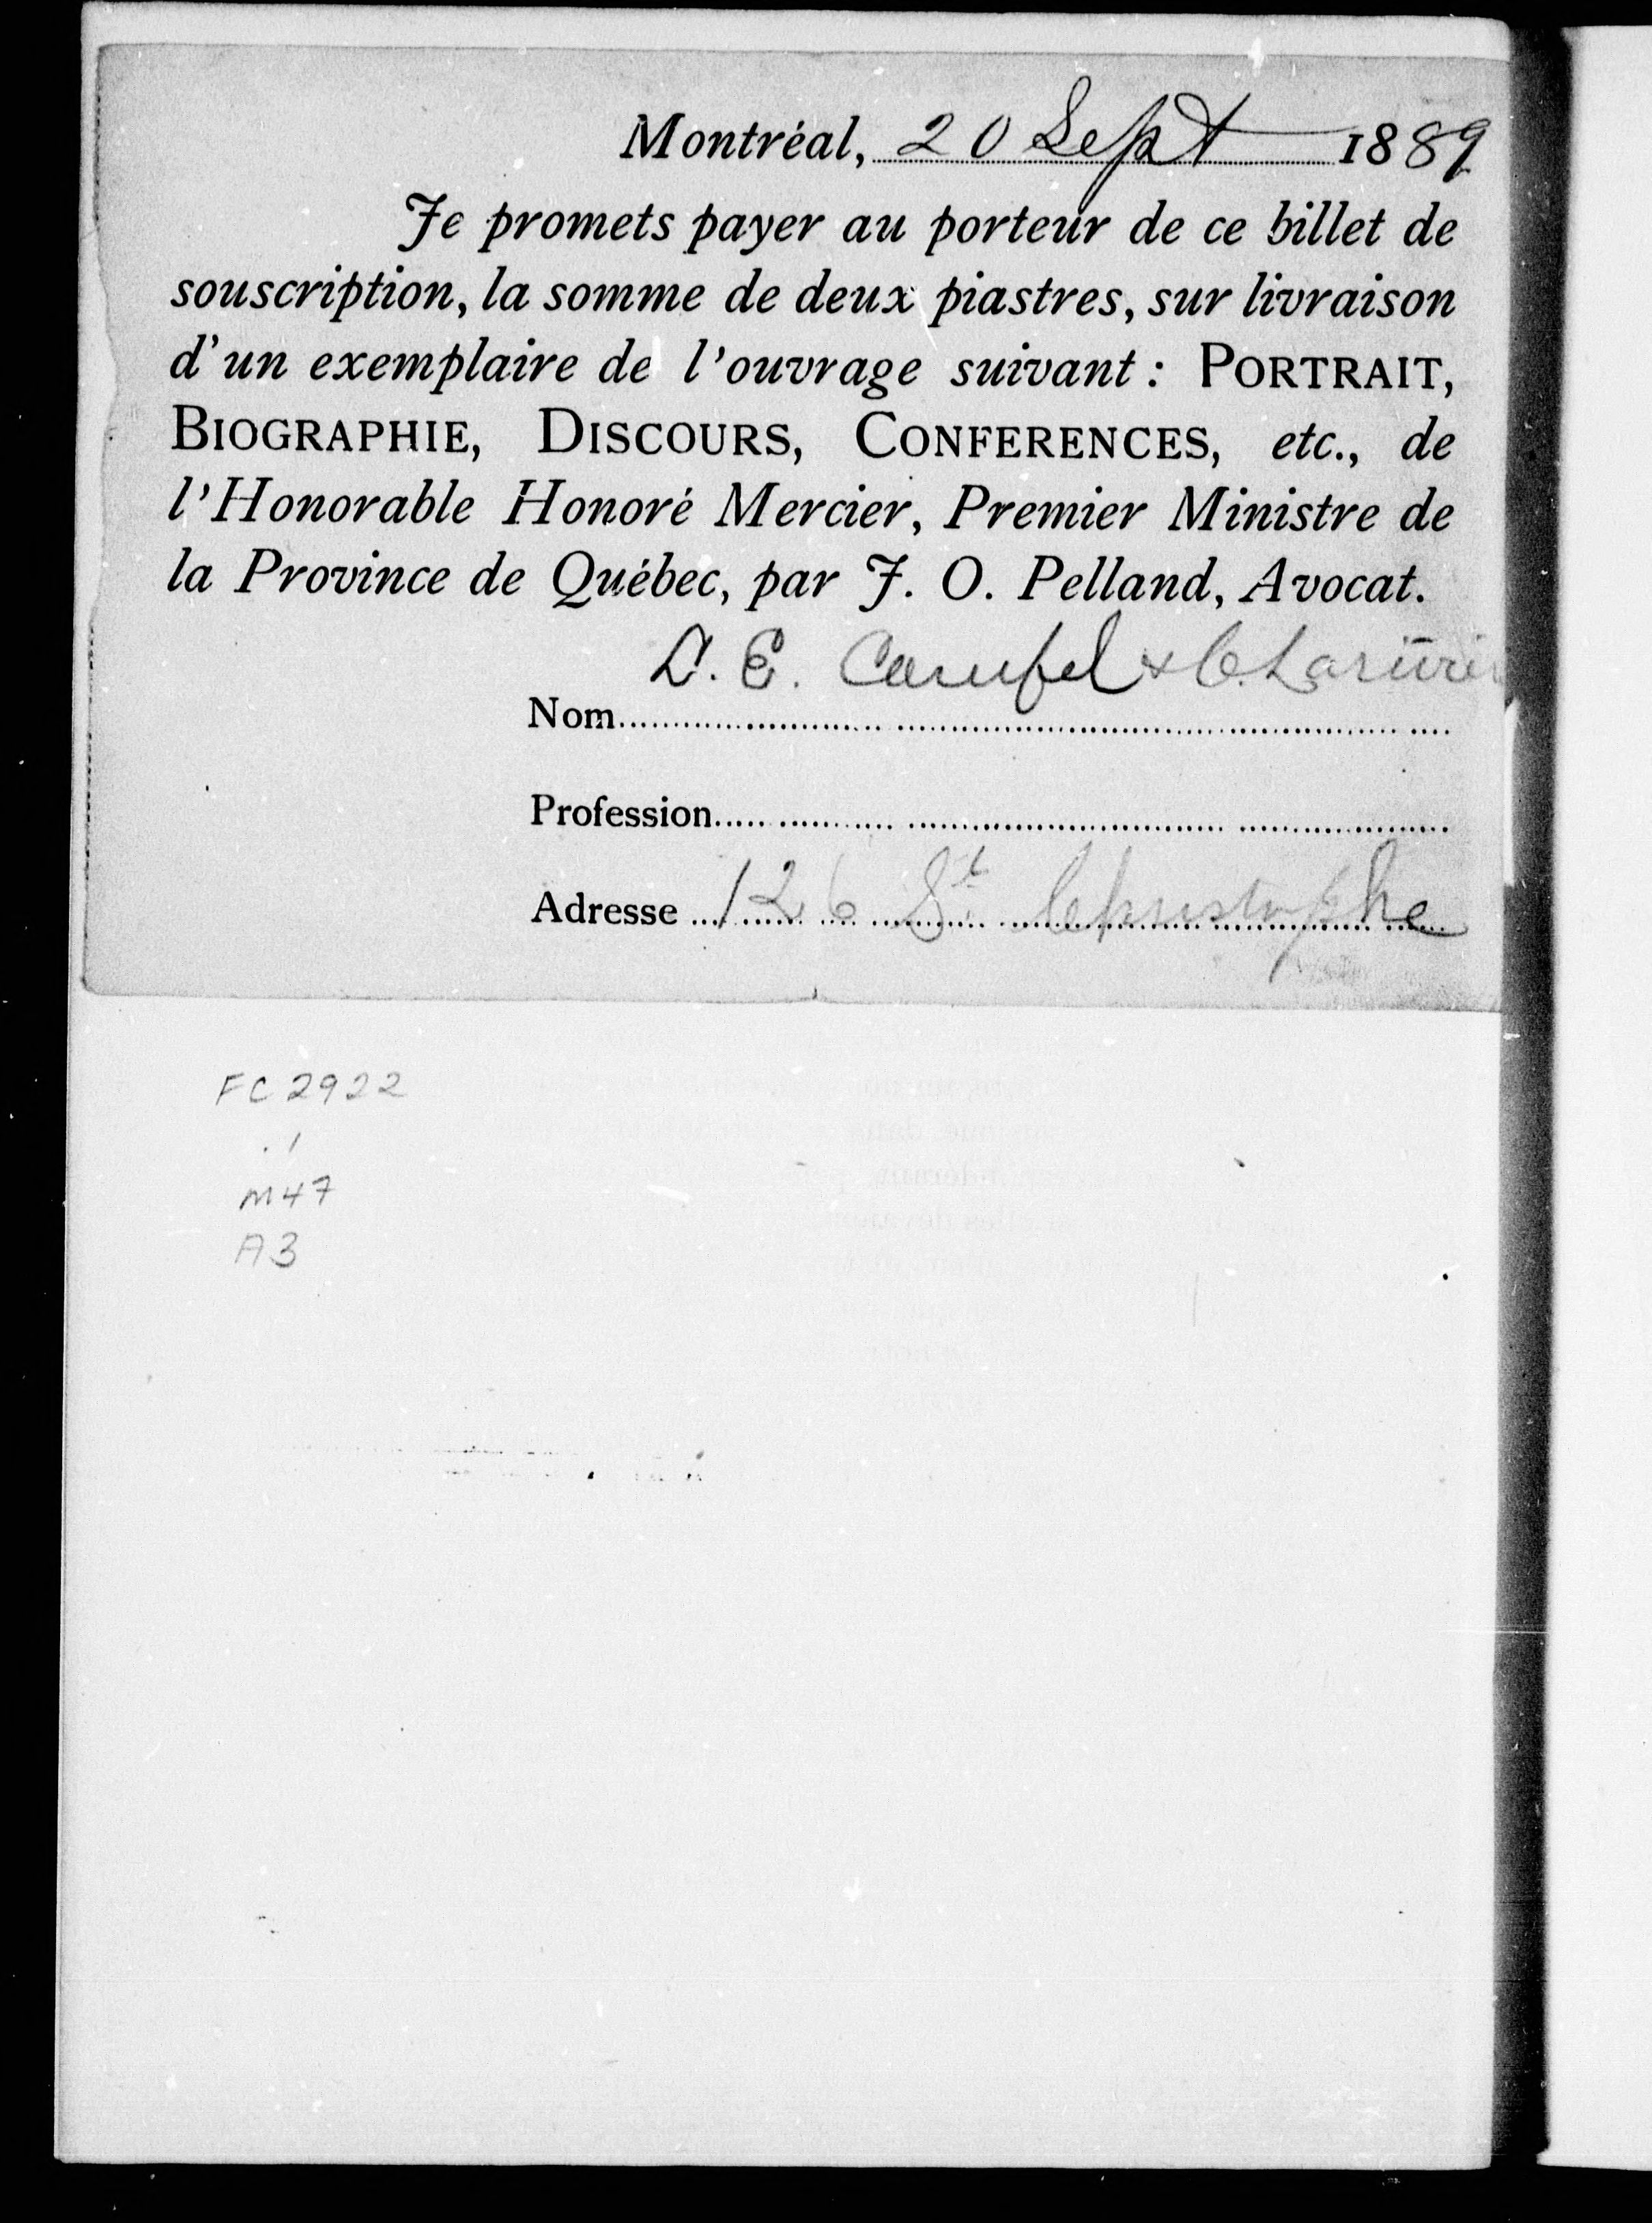 Montréal, 20 Sept 1889
Je promets payer au porteur de ce billet de
souscription, la somme de deux piastres, sur livraison
d'un exemplaire de l'ouvrage suivant : PORTRAIT,
BIOGRAPHIE, DISCOURS, CONFERENCES, etc., de
l'Honorable Honoré Mercier, Premier Ministre de
la Province de Québec, par J. O. Pelland, Avocat.
E.
Nom
Profession
Adresse 126 St Christophe
FC 2922
.1
M47
A3